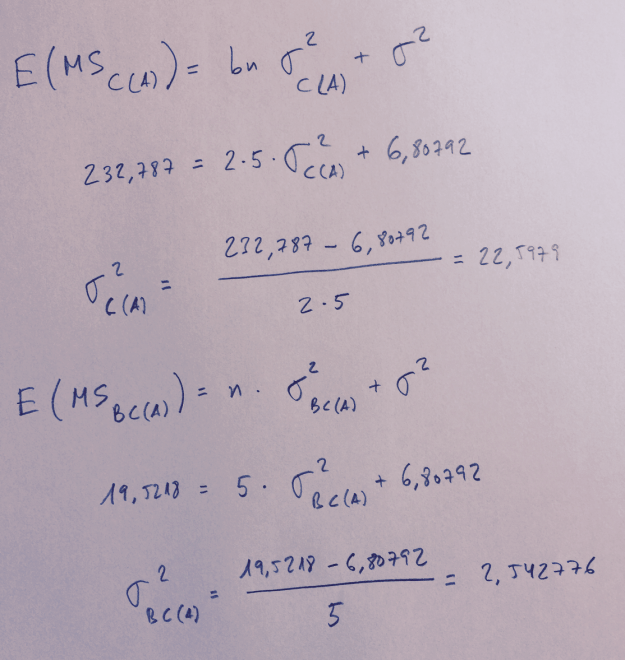 E(MS_C(A)) = bn σ²_C(A) + σ²
232,787 = 2·5·σ²_C(A) + 6,80792
σ²_C(A) = (232,787 − 6,80792) / (2·5) = 22,5979
E(MS_BC(A)) = n · σ²_BC(A) + σ²
19,5218 = 5 · σ²_BC(A) + 6,80792
σ²_BC(A) = (19,5218 − 6,80792) / 5 = 2,542776